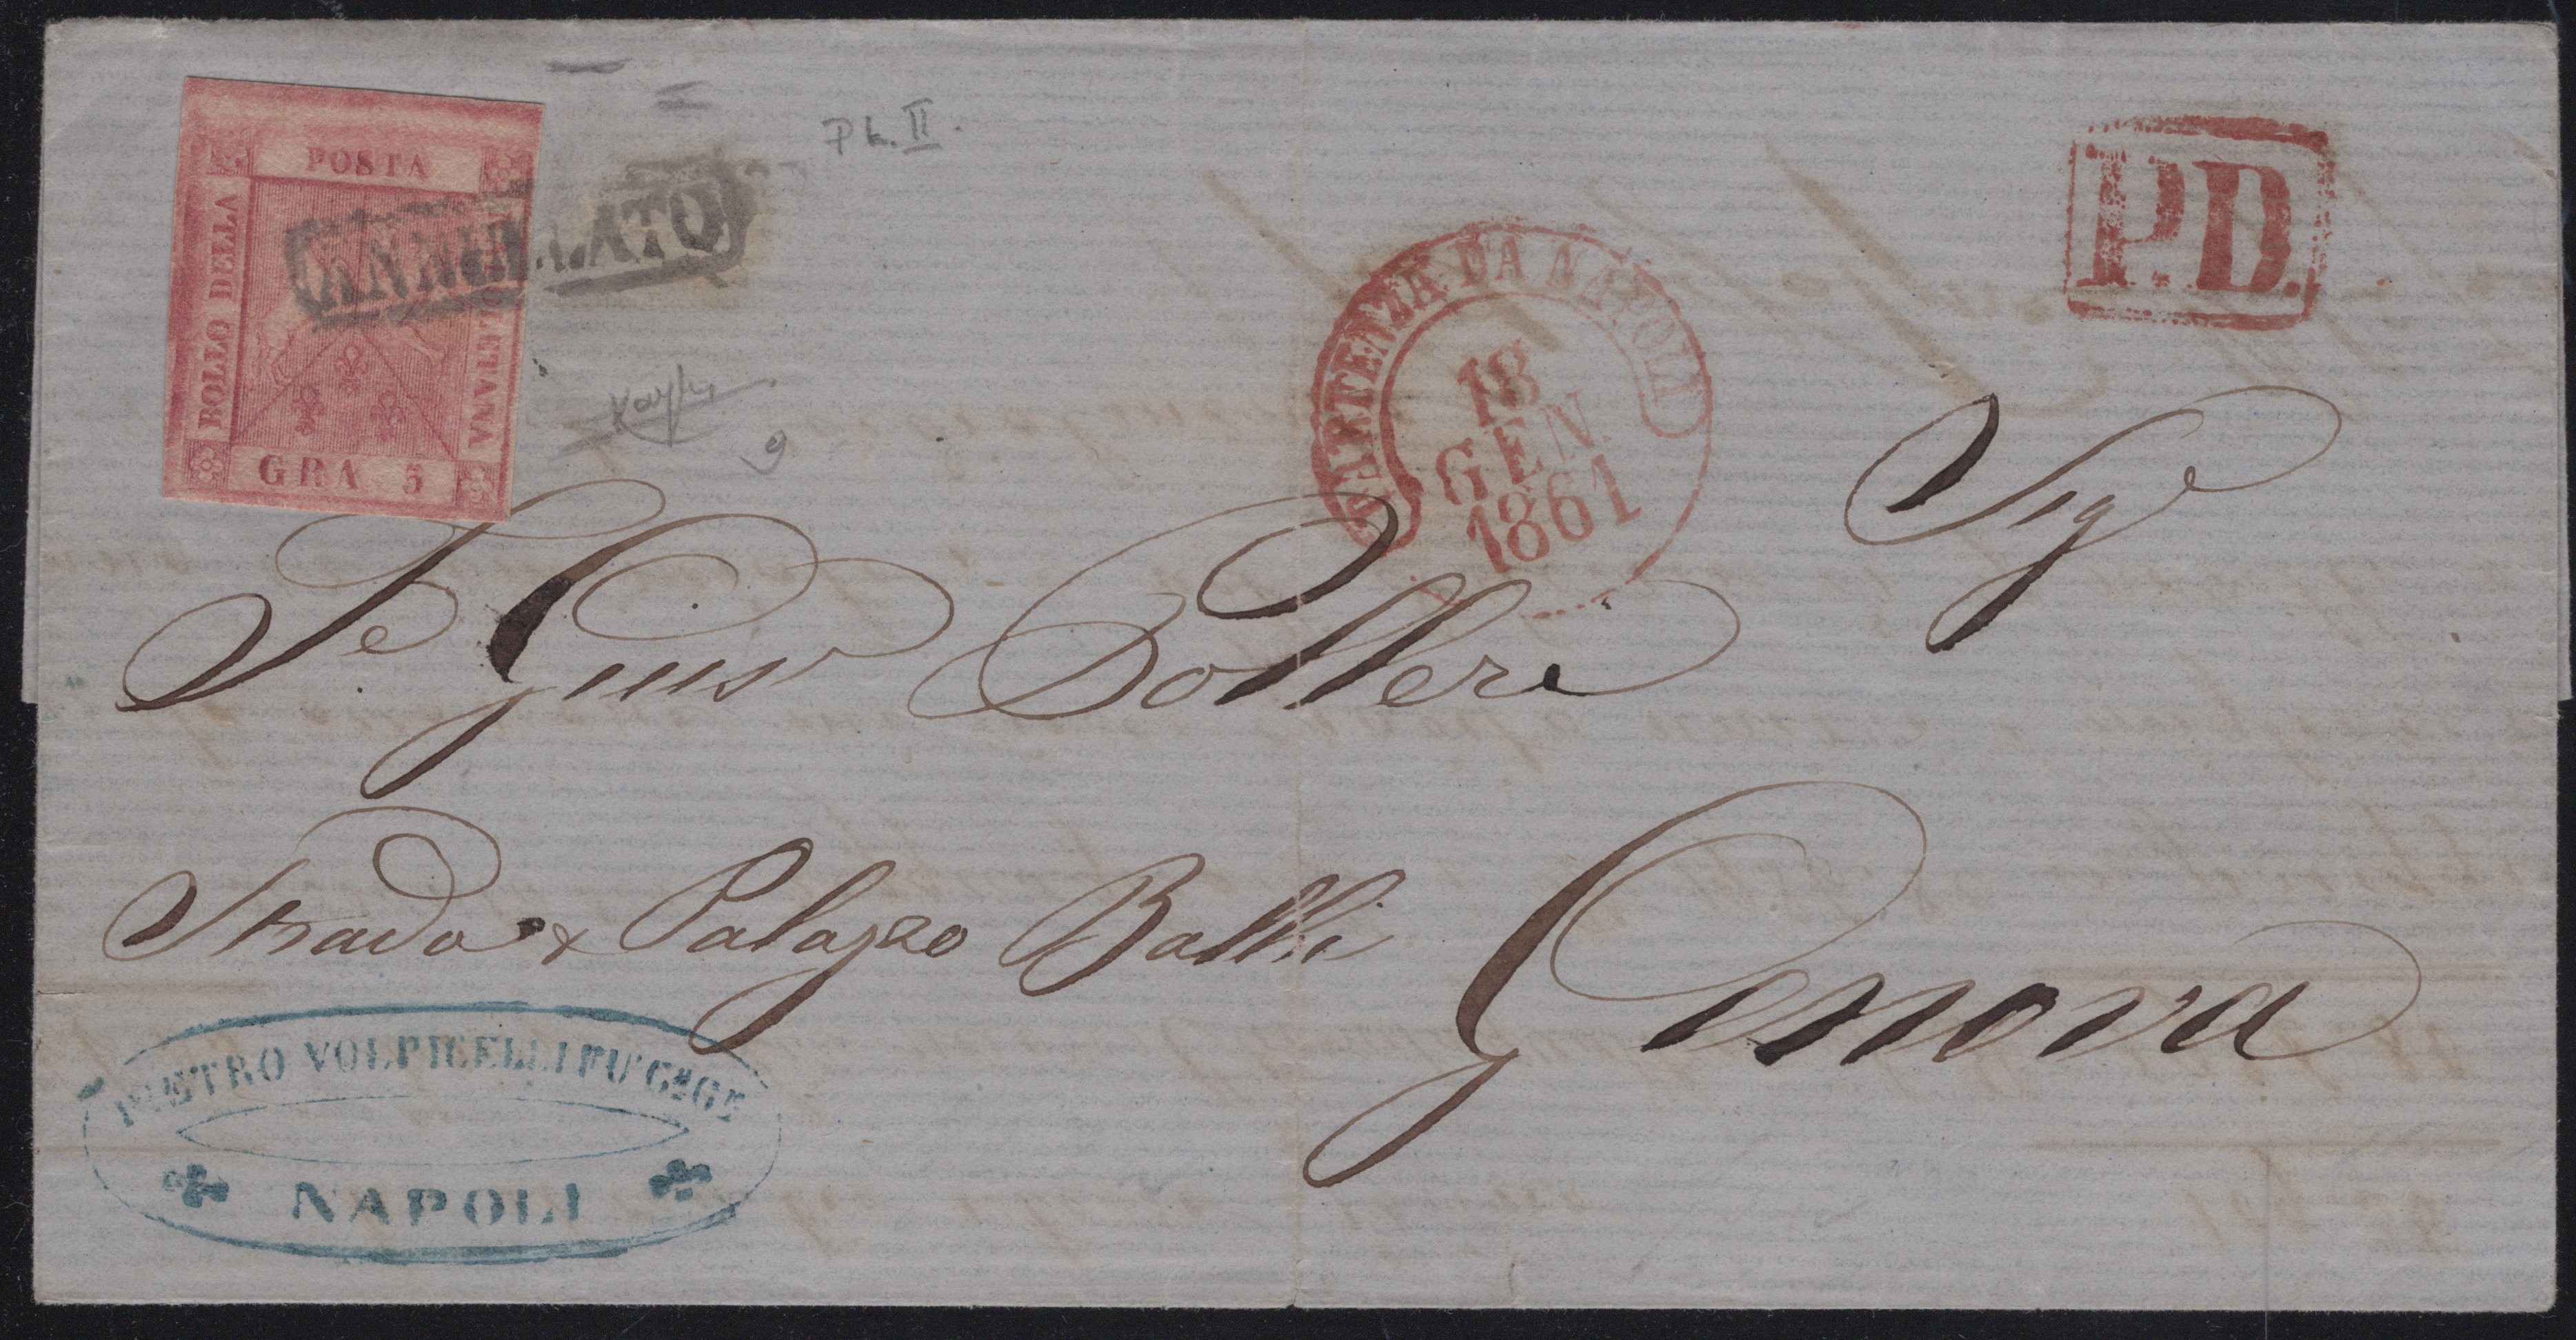 POSTA
BOLLO DELLA
NAPOLETANA
GRA 5
ANNULLATO
PL. II.
9
PARTENZA DA NAPOLI
18
GEN
1861
P.D.
Sigr
Gius
Strada & Palazzo Balbi
Genova
PIETRO VOLPICELLI FU
NAPOLI